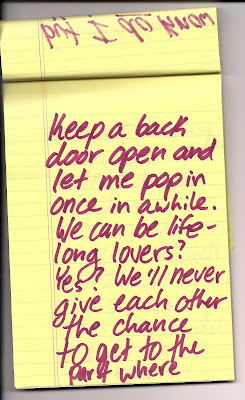 but I do know
Keep a back
door open and
let me pop in
once in awhile.
We can be life-
long lovers?
Yes? We'll never
give each other
the chance
to get to the
part where